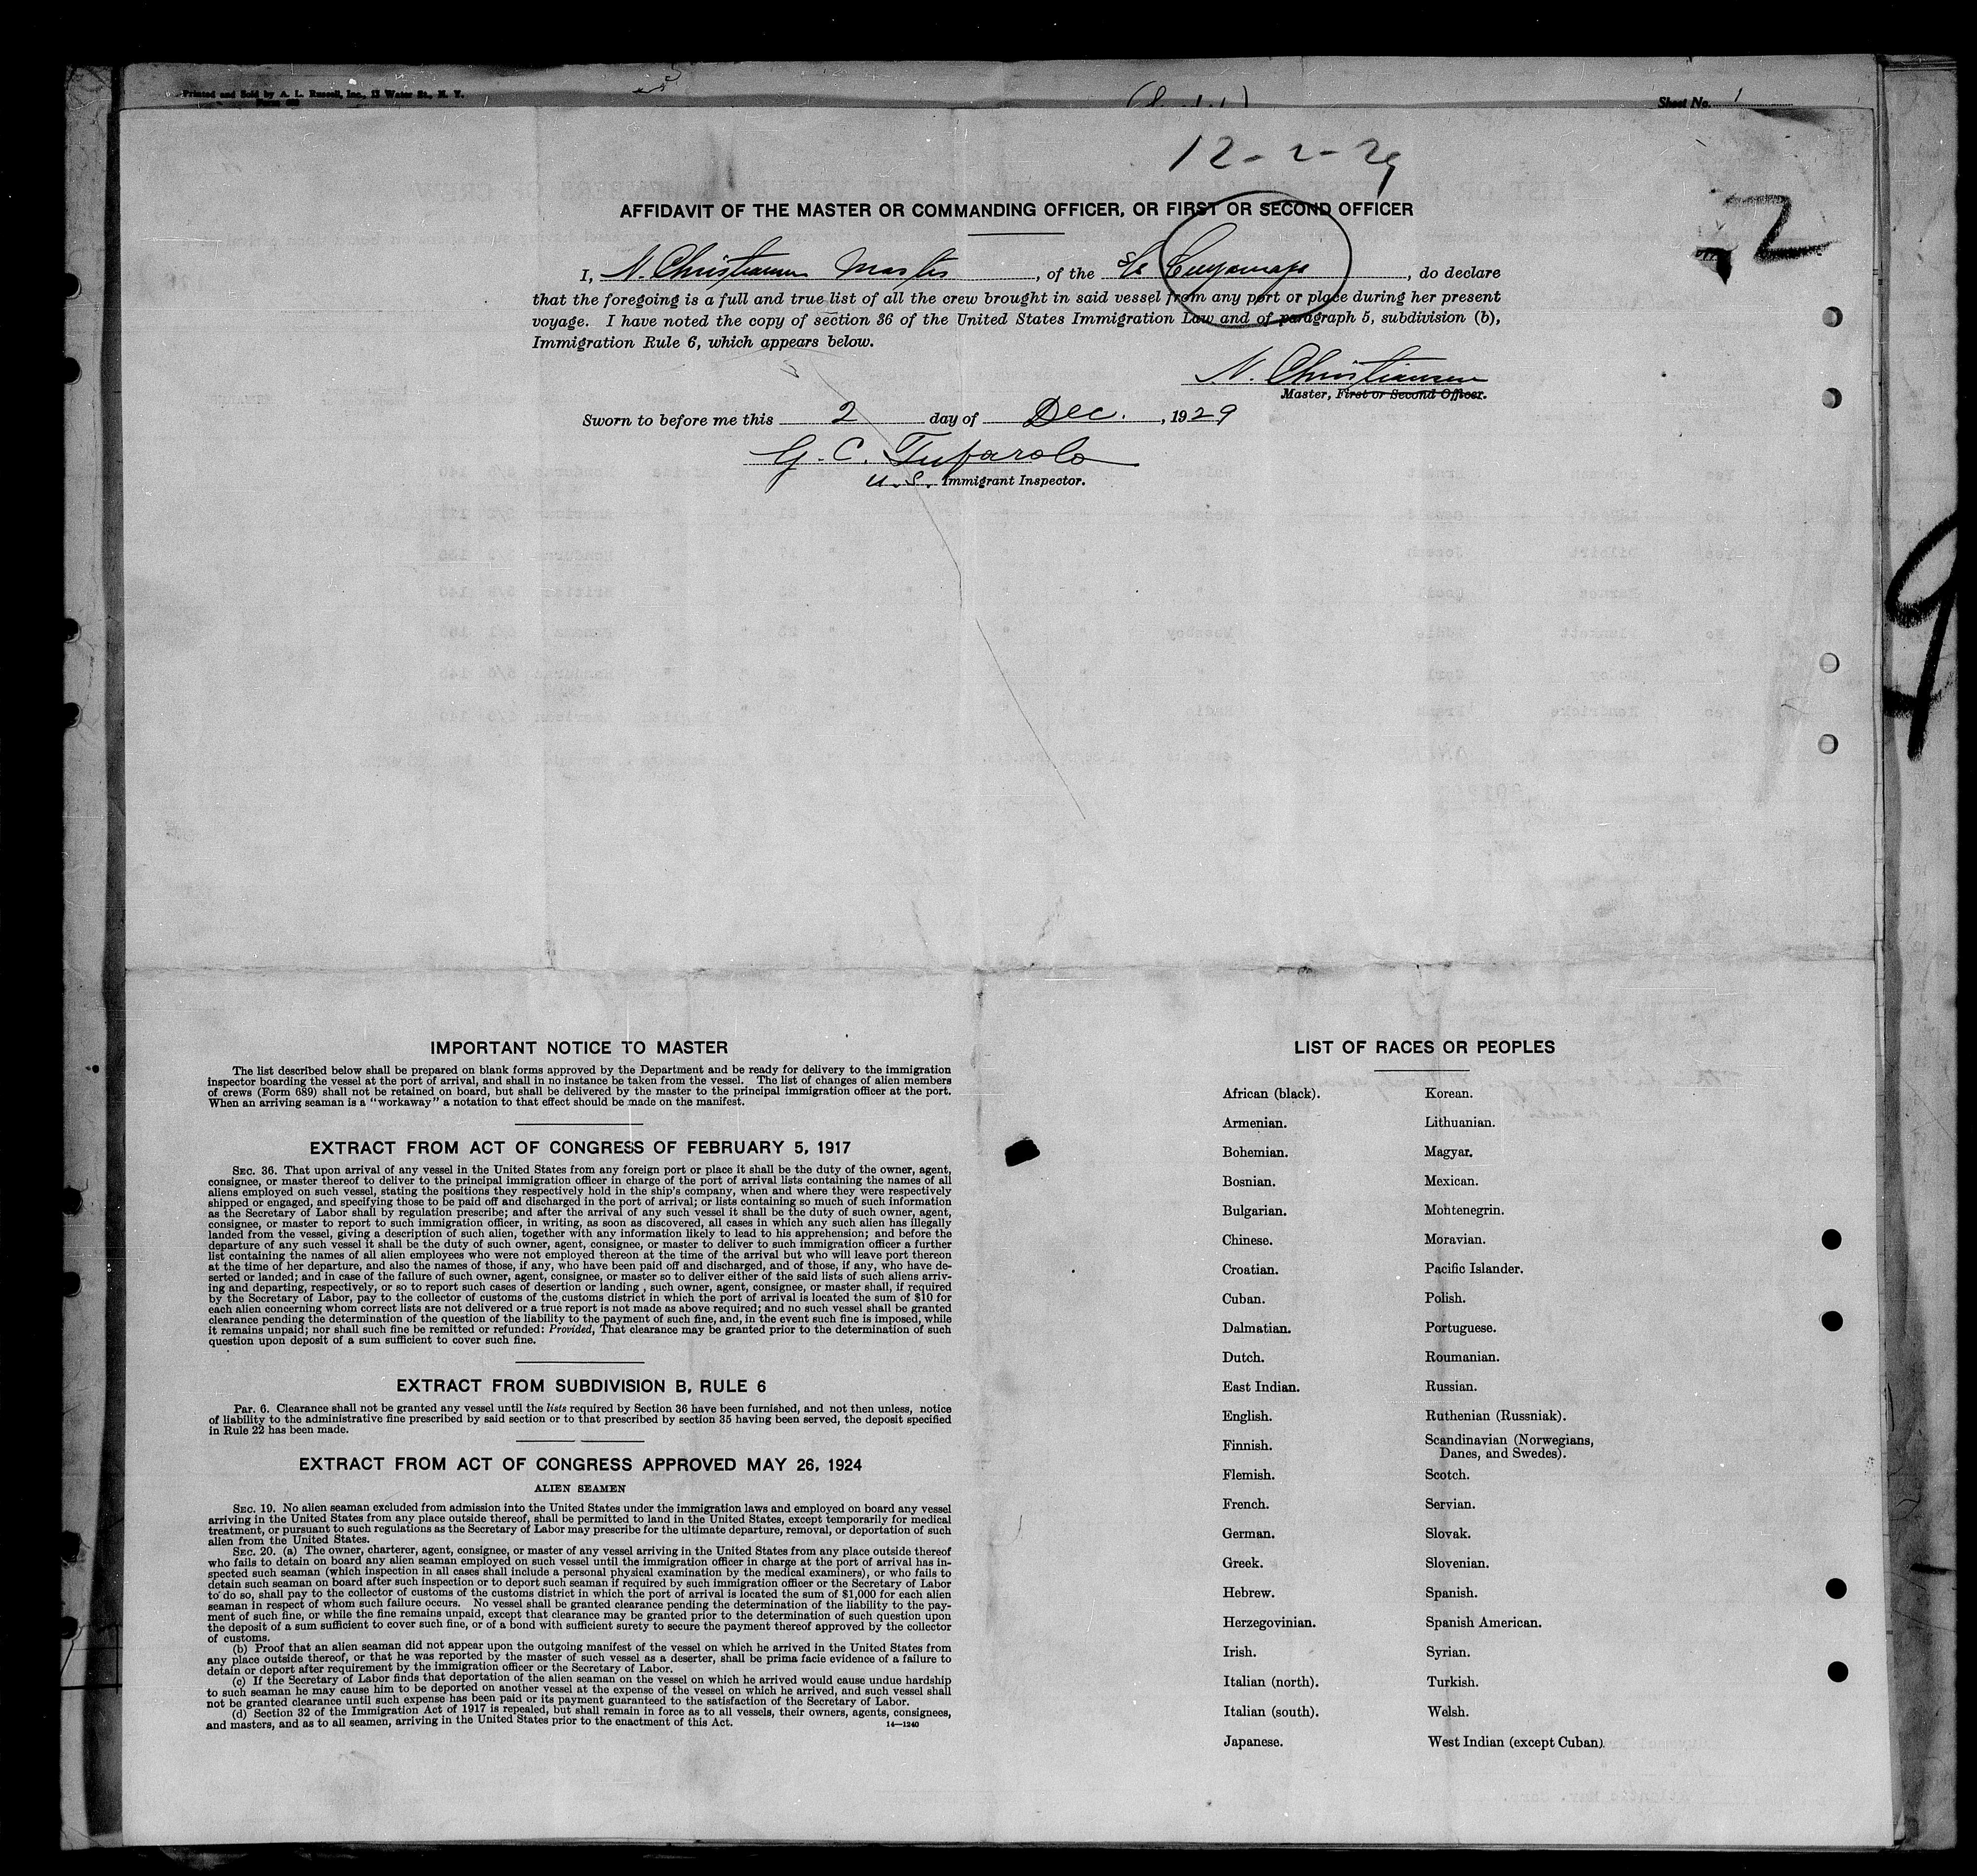 Printed and Sold by A. L. Russell, Inc., 13 Water St., N. Y.
Sheet No. 1
12-2-29
2
AFFIDAVIT OF THE MASTER OR COMMANDING OFFICER, OR FIRST OR SECOND OFFICER
I, N. Christiansen Master, of the S/S Cuyamapa, do declare
that the foregoing is a full and true list of all the crew brought in said vessel from any port or place during her present
voyage. I have noted the copy of section 36 of the United States Immigration Law and of paragraph 5, subdivision (b),
Immigration Rule 6, which appears below.
N. Christiansen
Master, First or Second Officer.
Sworn to before me this 2 day of Dec., 1929
G. C. Tufarolo
U.S. Immigrant Inspector.
9
IMPORTANT NOTICE TO MASTER
The list described below shall be prepared on blank forms approved by the Department and be ready for delivery to the immigration
inspector boarding the vessel at the port of arrival, and shall in no instance be taken from the vessel. The list of changes of alien members
of crews (Form 689) shall not be retained on board, but shall be delivered by the master to the principal immigration officer at the port.
When an arriving seaman is a "workaway" a notation to that effect should be made on the manifest.
EXTRACT FROM ACT OF CONGRESS OF FEBRUARY 5, 1917
SEC. 36. That upon arrival of any vessel in the United States from any foreign port or place it shall be the duty of the owner, agent,
consignee, or master thereof to deliver to the principal immigration officer in charge of the port of arrival lists containing the names of all
aliens employed on such vessel, stating the positions they respectively hold in the ship's company, when and where they were respectively
shipped or engaged, and specifying those to be paid off and discharged in the port of arrival; or lists containing so much of such information
as the Secretary of Labor shall by regulation prescribe; and after the arrival of any such vessel it shall be the duty of such owner, agent,
consignee, or master to report to such immigration officer, in writing, as soon as discovered, all cases in which any such alien has illegally
landed from the vessel, giving a description of such alien, together with any information likely to lead to his apprehension; and before the
departure of any such vessel it shall be the duty of such owner, agent, consignee, or master to deliver to such immigration officer a further
list containing the names of all alien employees who were not employed thereon at the time of the arrival but who will leave port thereon
at the time of her departure, and also the names of those, if any, who have been paid off and discharged, and of those, if any, who have de-
serted or landed; and in case of the failure of such owner, agent, consignee, or master so to deliver either of the said lists of such aliens arriv-
ing and departing, respectively, or so to report such cases of desertion or landing , such owner, agent, consignee, or master shall, if required
by the Secretary of Labor, pay to the collector of customs of the customs district in which the port of arrival is located the sum of $10 for
each alien concerning whom correct lists are not delivered or a true report is not made as above required; and no such vessel shall be granted
clearance pending the determination of the question of the liability to the payment of such fine, and, in the event such fine is imposed, while
it remains unpaid; nor shall such fine be remitted or refunded: Provided, That clearance may be granted prior to the determination of such
question upon deposit of a sum sufficient to cover such fine.
EXTRACT FROM SUBDIVISION B, RULE 6
Par. 6. Clearance shall not be granted any vessel until the lists required by Section 36 have been furnished, and not then unless, notice
of liability to the administrative fine prescribed by said section or to that prescribed by section 35 having been served, the deposit specified
in Rule 22 has been made.
EXTRACT FROM ACT OF CONGRESS APPROVED MAY 26, 1924
ALIEN SEAMEN
SEC. 19. No alien seaman excluded from admission into the United States under the immigration laws and employed on board any vessel
arriving in the United States from any place outside thereof, shall be permitted to land in the United States, except temporarily for medical
treatment, or pursuant to such regulations as the Secretary of Labor may prescribe for the ultimate departure, removal, or deportation of such
alien from the United States.
SEC. 20. (a) The owner, charterer, agent, consignee, or master of any vessel arriving in the United States from any place outside thereof
who fails to detain on board any alien seaman employed on such vessel until the immigration officer in charge at the port of arrival has in-
spected such seaman (which inspection in all cases shall include a personal physical examination by the medical examiners), or who fails to
detain such seaman on board after such inspection or to deport such seaman if required by such immigration officer or the Secretary of Labor
to do so, shall pay to the collector of customs of the customs district in which the port of arrival is located the sum of $1,000 for each alien
seaman in respect of whom such failure occurs. No vessel shall be granted clearance pending the determination of the liability to the pay-
ment of such fine, or while the fine remains unpaid, except that clearance may be granted prior to the determination of such question upon
the deposit of a sum sufficient to cover such fine, or of a bond with sufficient surety to secure the payment thereof approved by the collector
of customs.
(b) Proof that an alien seaman did not appear upon the outgoing manifest of the vessel on which he arrived in the United States from
any place outside thereof, or that he was reported by the master of such vessel as a deserter, shall be prima facie evidence of a failure to
detain or deport after requirement by the immigration officer or the Secretary of Labor.
(c) If the Secretary of Labor finds that deportation of the alien seaman on the vessel on which he arrived would cause undue hardship
to such seaman he may cause him to be deported on another vessel at the expense of the vessel on which he arrived, and such vessel shall
not be granted clearance until such expense has been paid or its payment guaranteed to the satisfaction of the Secretary of Labor.
(d) Section 32 of the Immigration Act of 1917 is repealed, but shall remain in force as to all vessels, their owners, agents, consignees,
and masters, and as to all seamen, arriving in the United States prior to the enactment of this Act.
14—1240
LIST OF RACES OR PEOPLES
African (black).
Armenian.
Bohemian.
Bosnian.
Bulgarian.
Chinese.
Croatian.
Cuban.
Dalmatian.
Dutch.
East Indian.
English.
Finnish.
Flemish.
French.
German.
Greek.
Hebrew.
Herzegovinian.
Irish.
Italian (north).
Italian (south).
Japanese.
Korean.
Lithuanian.
Magyar.
Mexican.
Montenegrin.
Moravian.
Pacific Islander.
Polish.
Portuguese.
Roumanian.
Russian.
Ruthenian (Russniak).
Scandinavian (Norwegians,
Danes, and Swedes).
Scotch.
Servian.
Slovak.
Slovenian.
Spanish.
Spanish American.
Syrian.
Turkish.
Welsh.
West Indian (except Cuban).